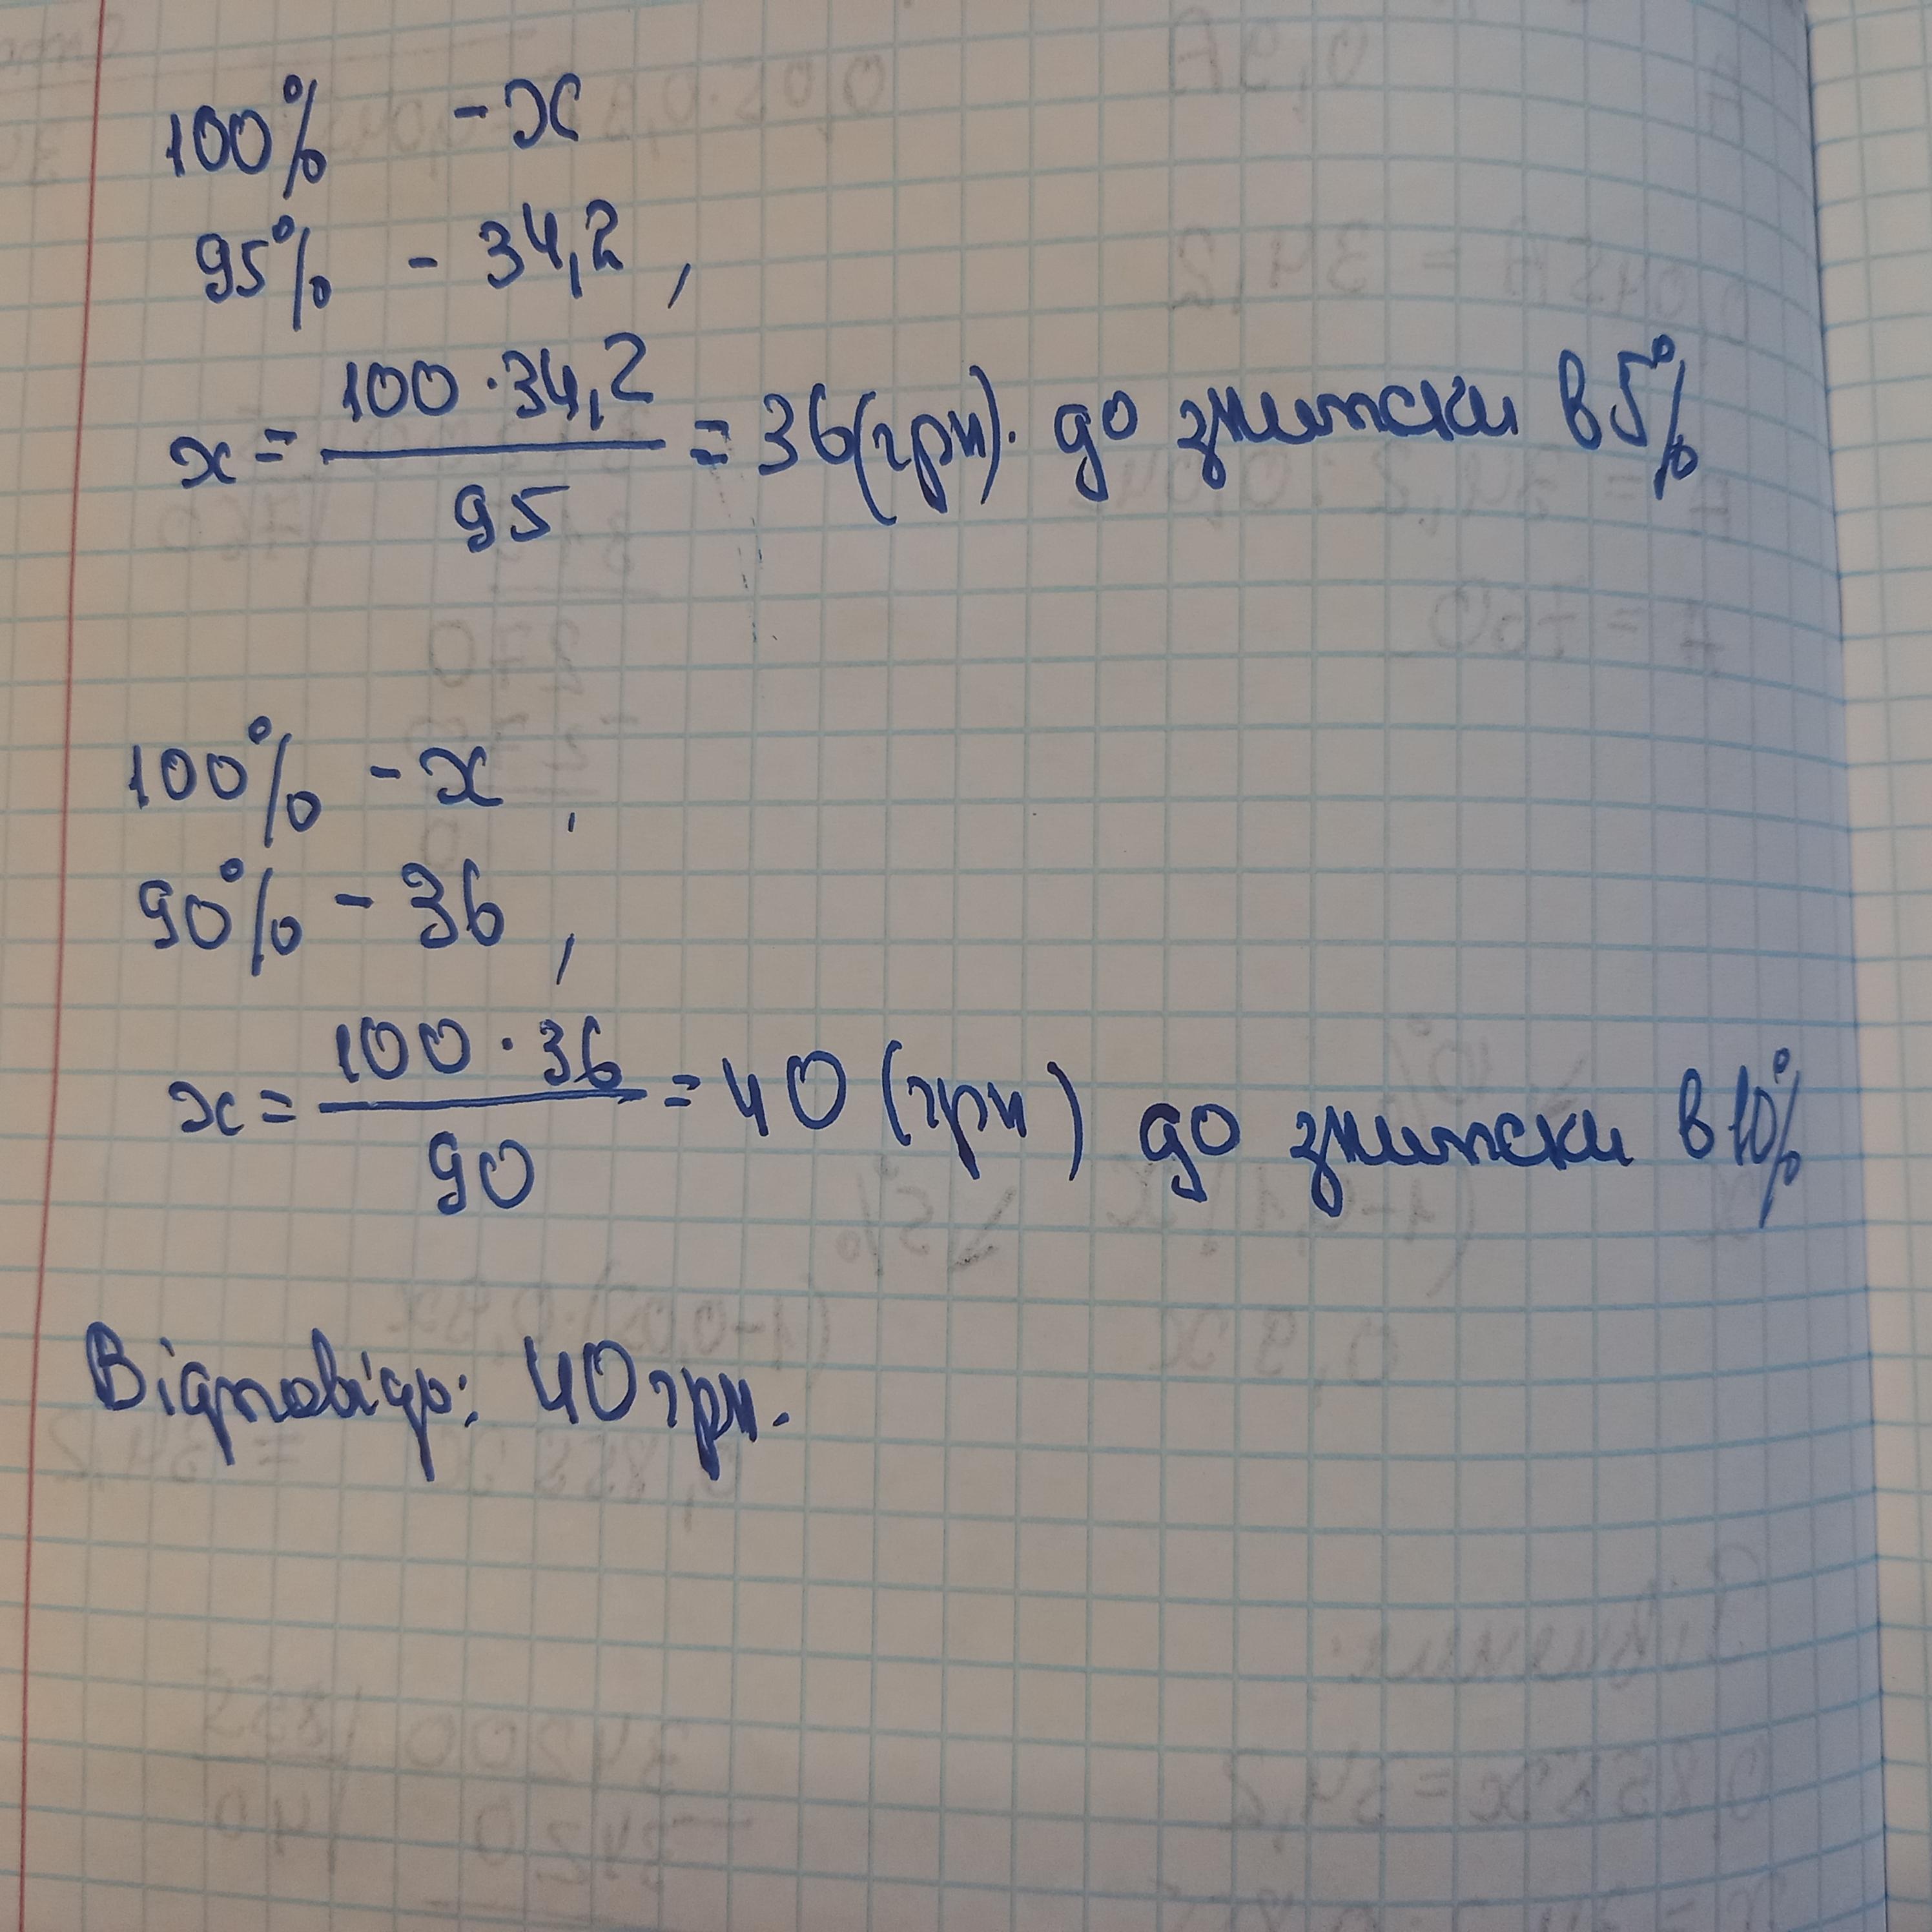 100% - x
95% - 34,2,
x = 100 · 34,2 / 95 = 36 (грн). до знижки в 5%
100% - x,
90% - 36,
x = 100 · 36 / 90 = 40 (грн) до знижки в 10%
Відповідь: 40 грн.